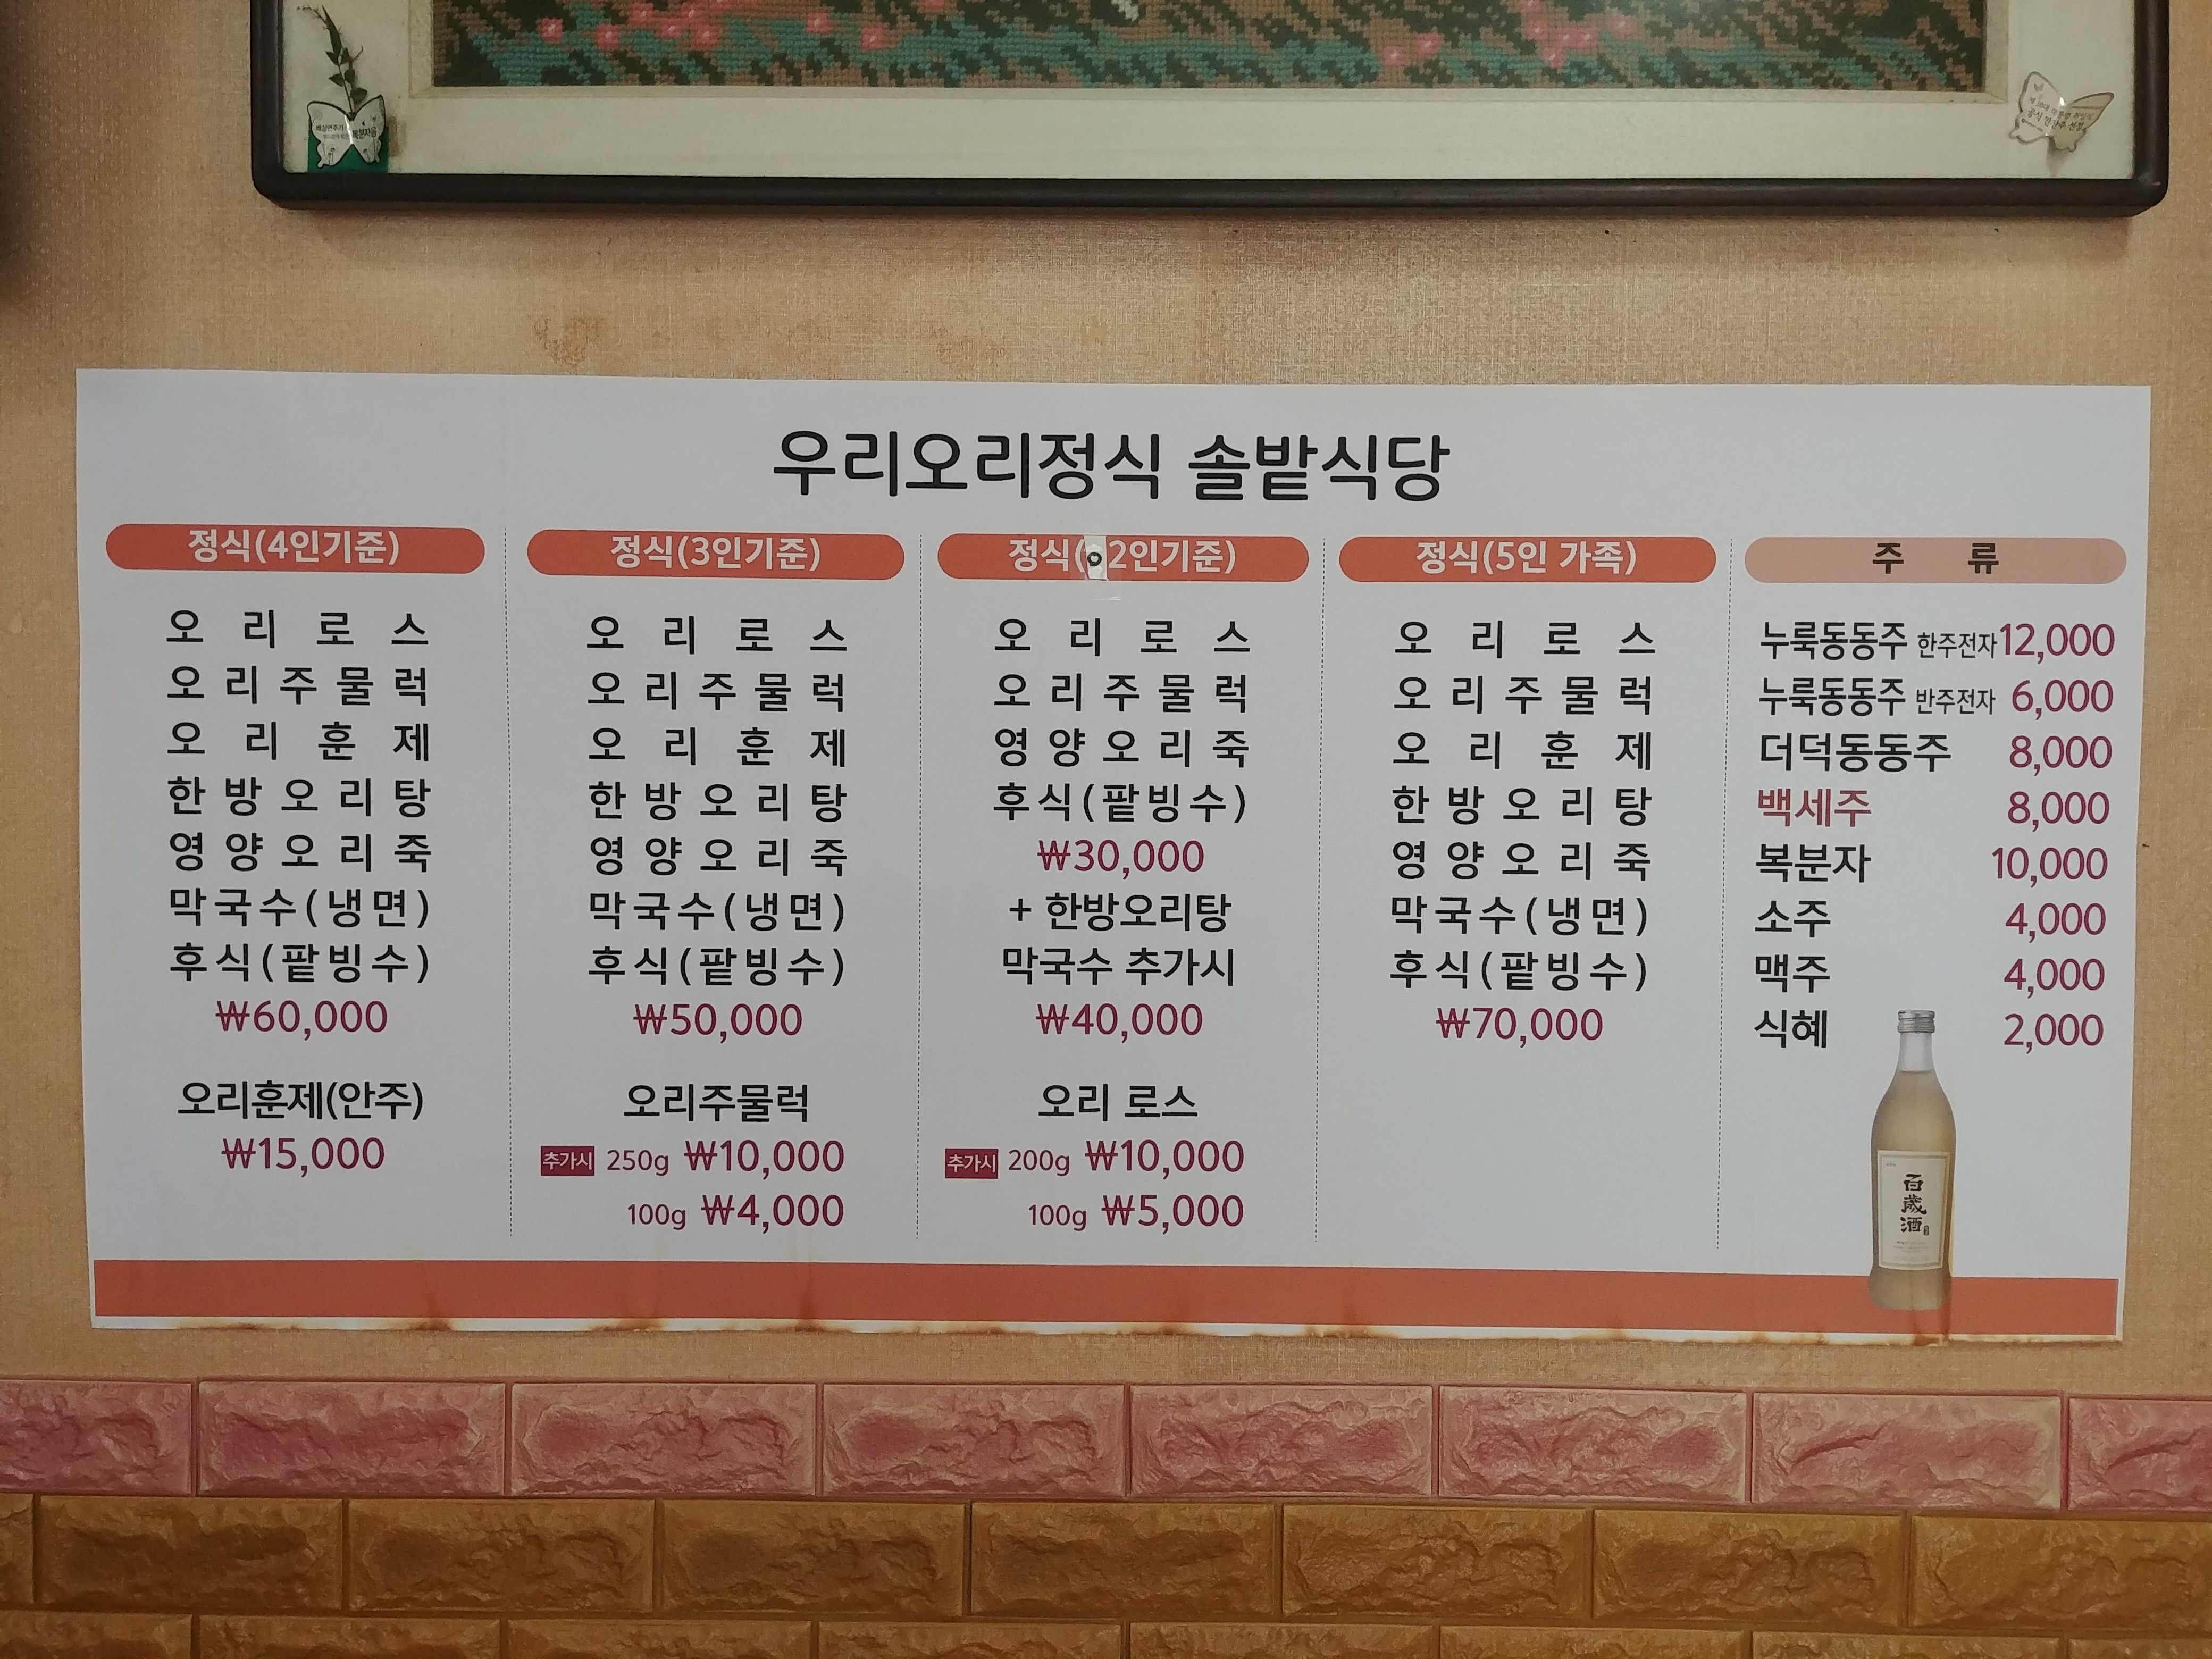 우리오리정식 솔밭식당
정식(4인기준)
오리로스
오리주물럭
오리훈제
한방오리탕
영양오리죽
막국수(냉면)
후식(팥빙수)
₩60,000
오리훈제(안주)
₩15,000
정식(3인기준)
오리로스
오리주물럭
오리훈제
한방오리탕
영양오리죽
막국수(냉면)
후식(팥빙수)
₩50,000
오리주물럭
추가시 250g ₩10,000
100g ₩4,000
정식( 2인기준)
오리로스
오리주물럭
영양오리죽
후식(팥빙수)
₩30,000
+ 한방오리탕
막국수 추가시
₩40,000
오리 로스
추가시 200g ₩10,000
100g ₩5,000
정식(5인 가족)
오리로스
오리주물럭
오리훈제
한방오리탕
영양오리죽
막국수(냉면)
후식(팥빙수)
₩70,000
주 류
누룩동동주 한주전자 12,000
누룩동동주 반주전자 6,000
더덕동동주 8,000
백세주 8,000
복분자 10,000
소주 4,000
맥주 4,000
식혜 2,000
百歲酒